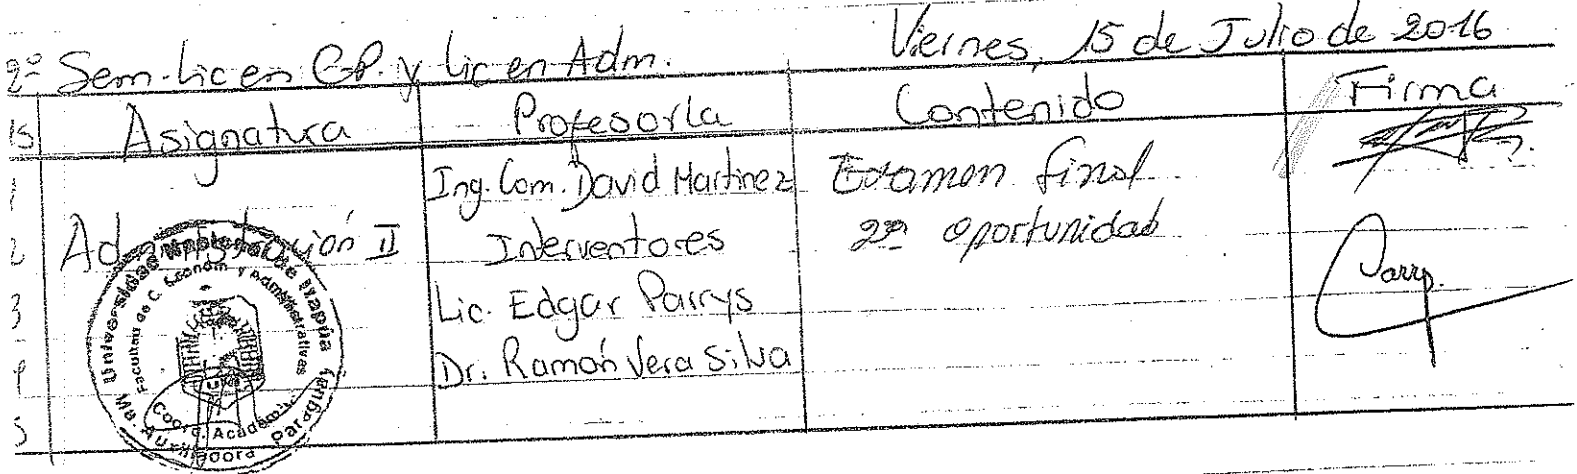 Viernes, 15 de Julio de 2016
2º Sem. Lic en C.P. y Lic en Adm.
Asignatura Profesor/a Contenido Firma
1 Ing. Com. David Martinez Examen final
2 Administración II Interventores 2da oportunidad
3 Lic. Edgar Parrys
Dr. Ramón Vera Silva
5
Universidad Nacional de Itapúa
Facultad de C. Económ. y Administrativas
Coord. Académ.
Ma. Auxiliadora Paraguay